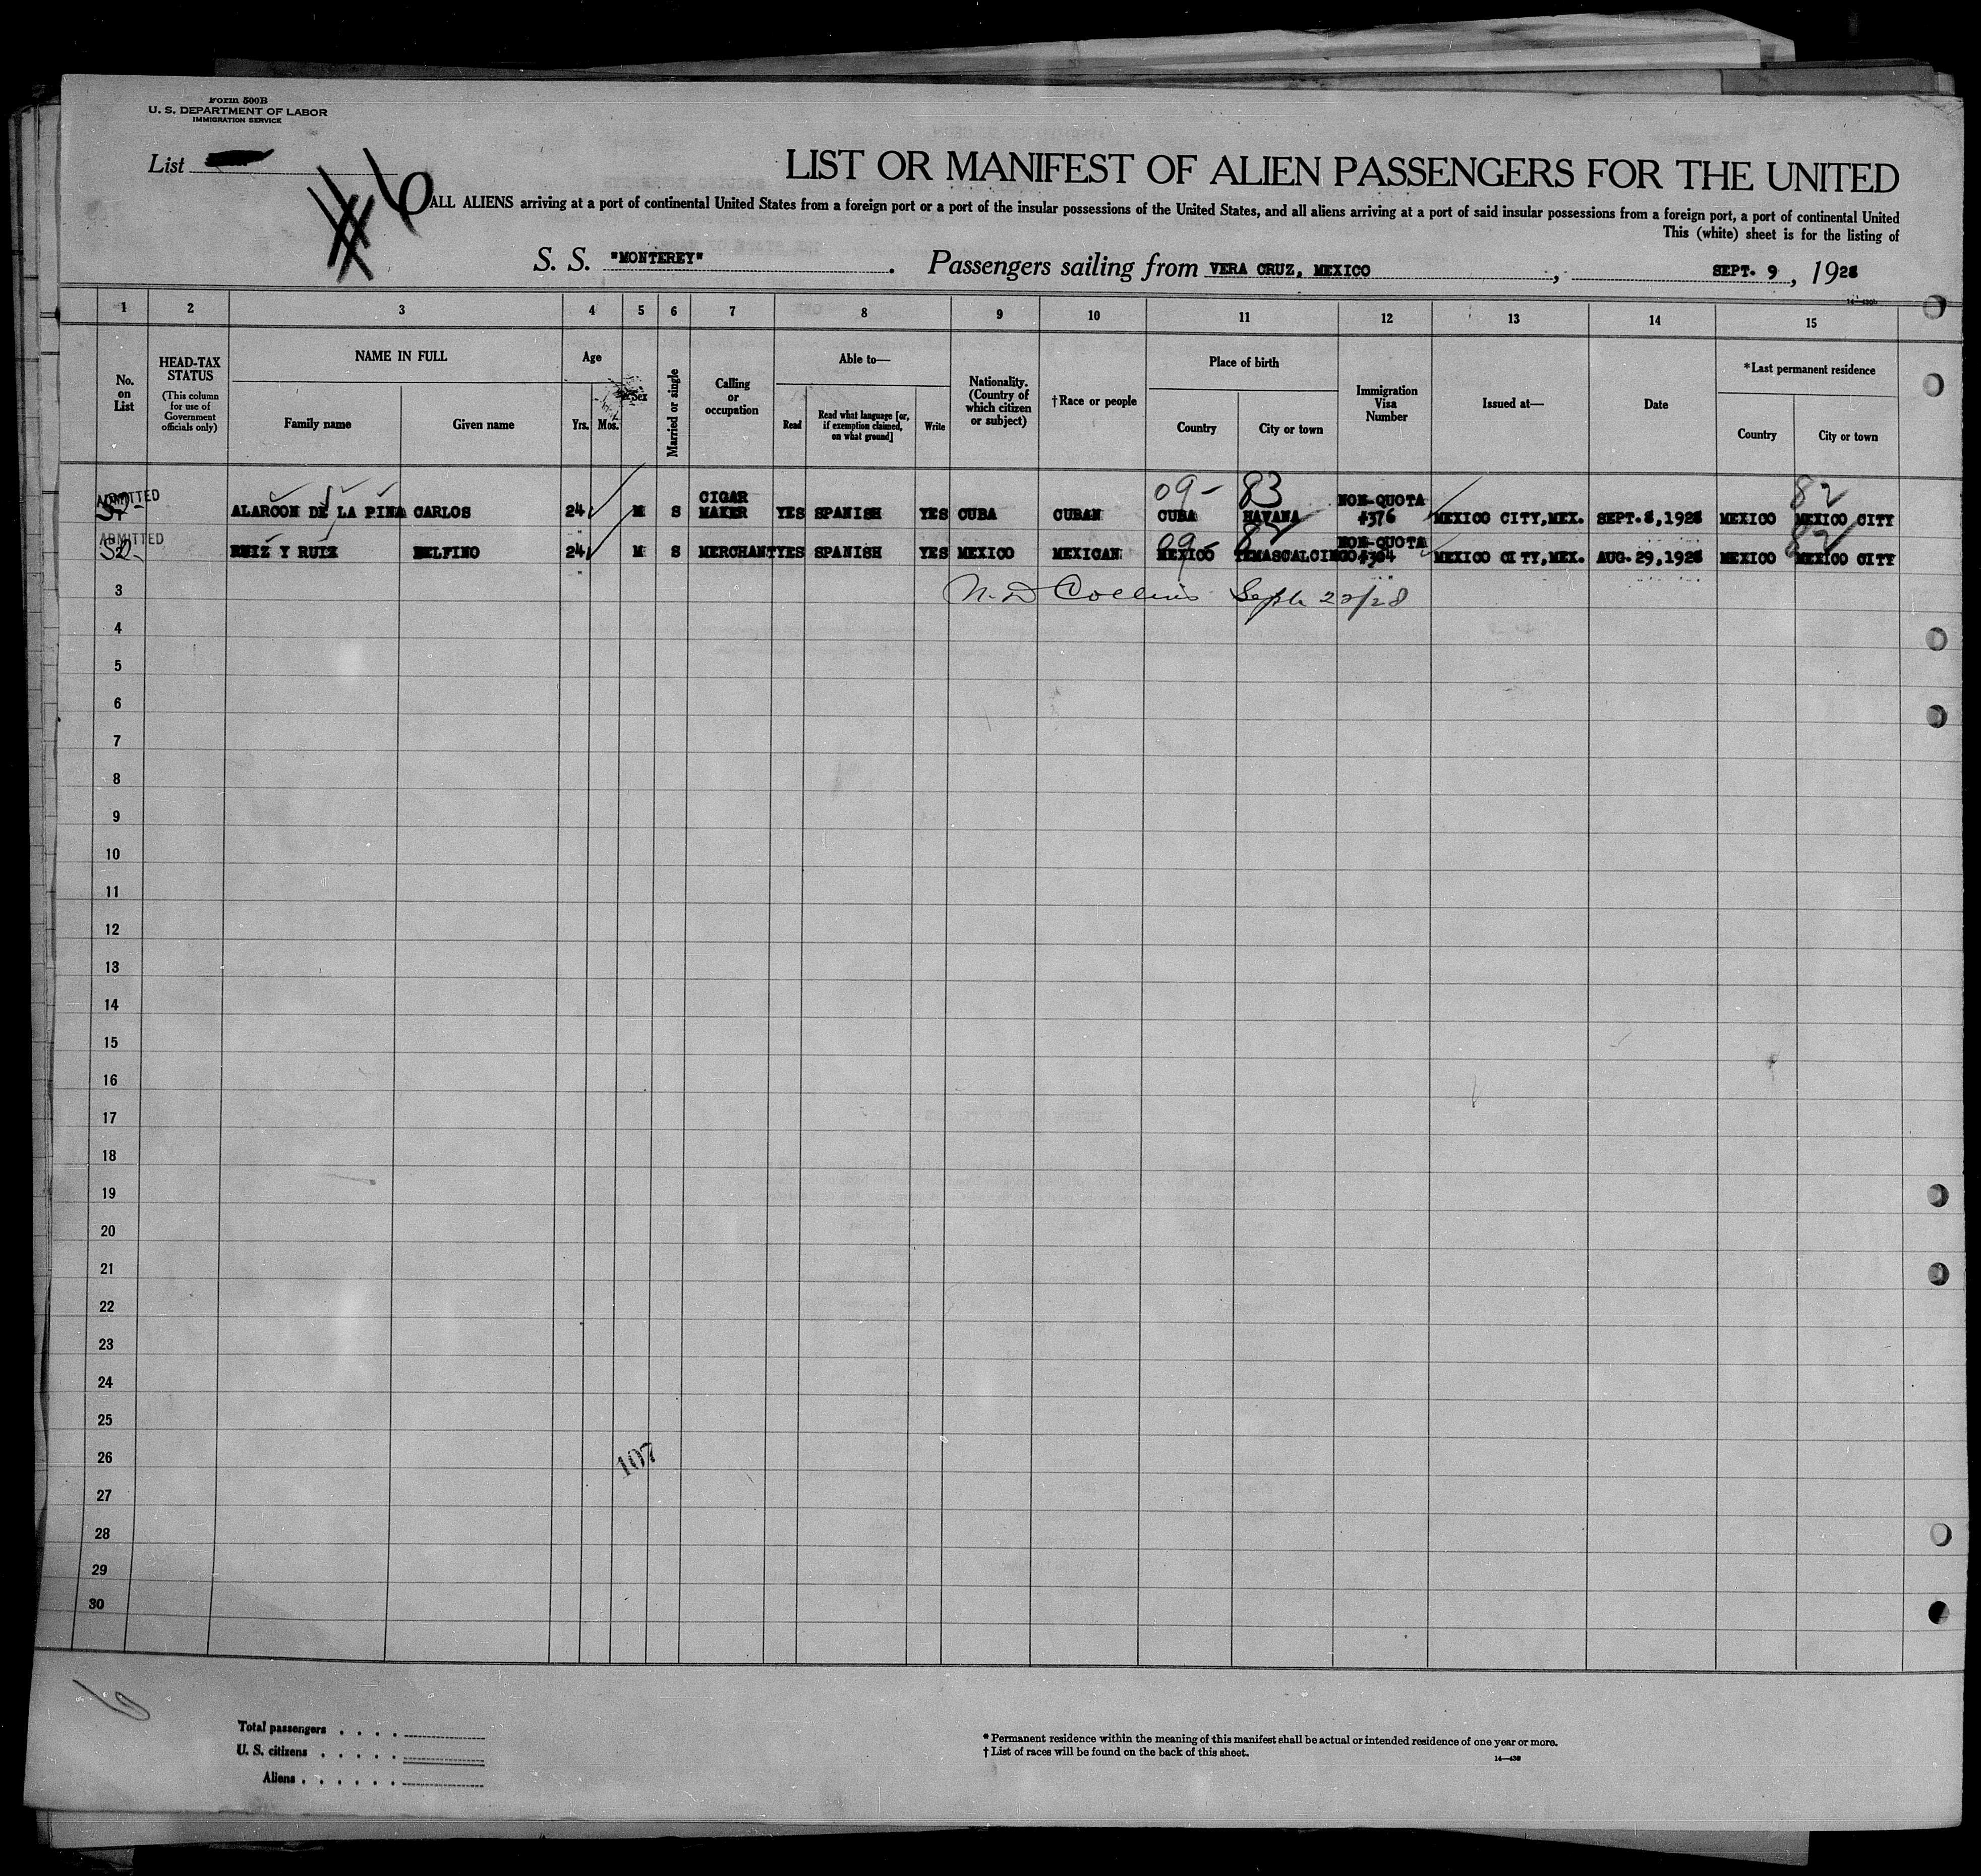 Form 500B
U. S. DEPARTMENT OF LABOR
IMMIGRATION SERVICE
List
6
LIST OR MANIFEST OF ALIEN PASSENGERS FOR THE UNITED
ALL ALIENS arriving at a port of continental United States from a foreign port or a port of the insular possessions of the United States, and all aliens arriving at a port of said insular possessions from a foreign port, a port of continental United
This (white) sheet is for the listing of
S. S. "MONTEREY" . Passengers sailing from VERA CRUZ, MEXICO , SEPT. 9 , 1928
14—430b
1 2 3 4 5 6 7 8 9 10 11 12 13 14 15
No. on List
HEAD-TAX STATUS
(This column for use of Government officials only)
NAME IN FULL
Family name
Given name
Age
Yrs.
Mos.
Sex
Married or single
Calling or occupation
Able to—
Read
Read what language [or, if exemption claimed, on what ground]
Write
Nationality. (Country of which citizen or subject)
†Race or people
Place of birth
Country
City or town
Immigration Visa Number
Issued at—
Date
*Last permanent residence
Country
City or town
09- 83 82
ADMITTED ALARCON DE LA PINA CARLOS 24 M S CIGAR MAKER YES SPANISH YES CUBA CUBAN CUBA HAVANA NON-QUOTA #376 MEXICO CITY,MEX. SEPT.8,1928 MEXICO MEXICO CITY
09- 82 82
ADMITTED RUIZ Y RUIZ DELFINO 24 M S MERCHANT YES SPANISH YES MEXICO MEXICAN MEXICO TEMASCALCINGO NON-QUOTA #304 MEXICO CITY,MEX. AUG.29,1928 MEXICO MEXICO CITY
3 N. D Collins Sept 22/28
4
5
6
7
8
9
10
11
12
13
14
15
16
17
18
19
20
21
22
23
24
25
26
107
27
28
29
30
Total passengers . . . .
U. S. citizens . . . . .
Aliens . . . . . .
* Permanent residence within the meaning of this manifest shall be actual or intended residence of one year or more.
† List of races will be found on the back of this sheet.
14—430